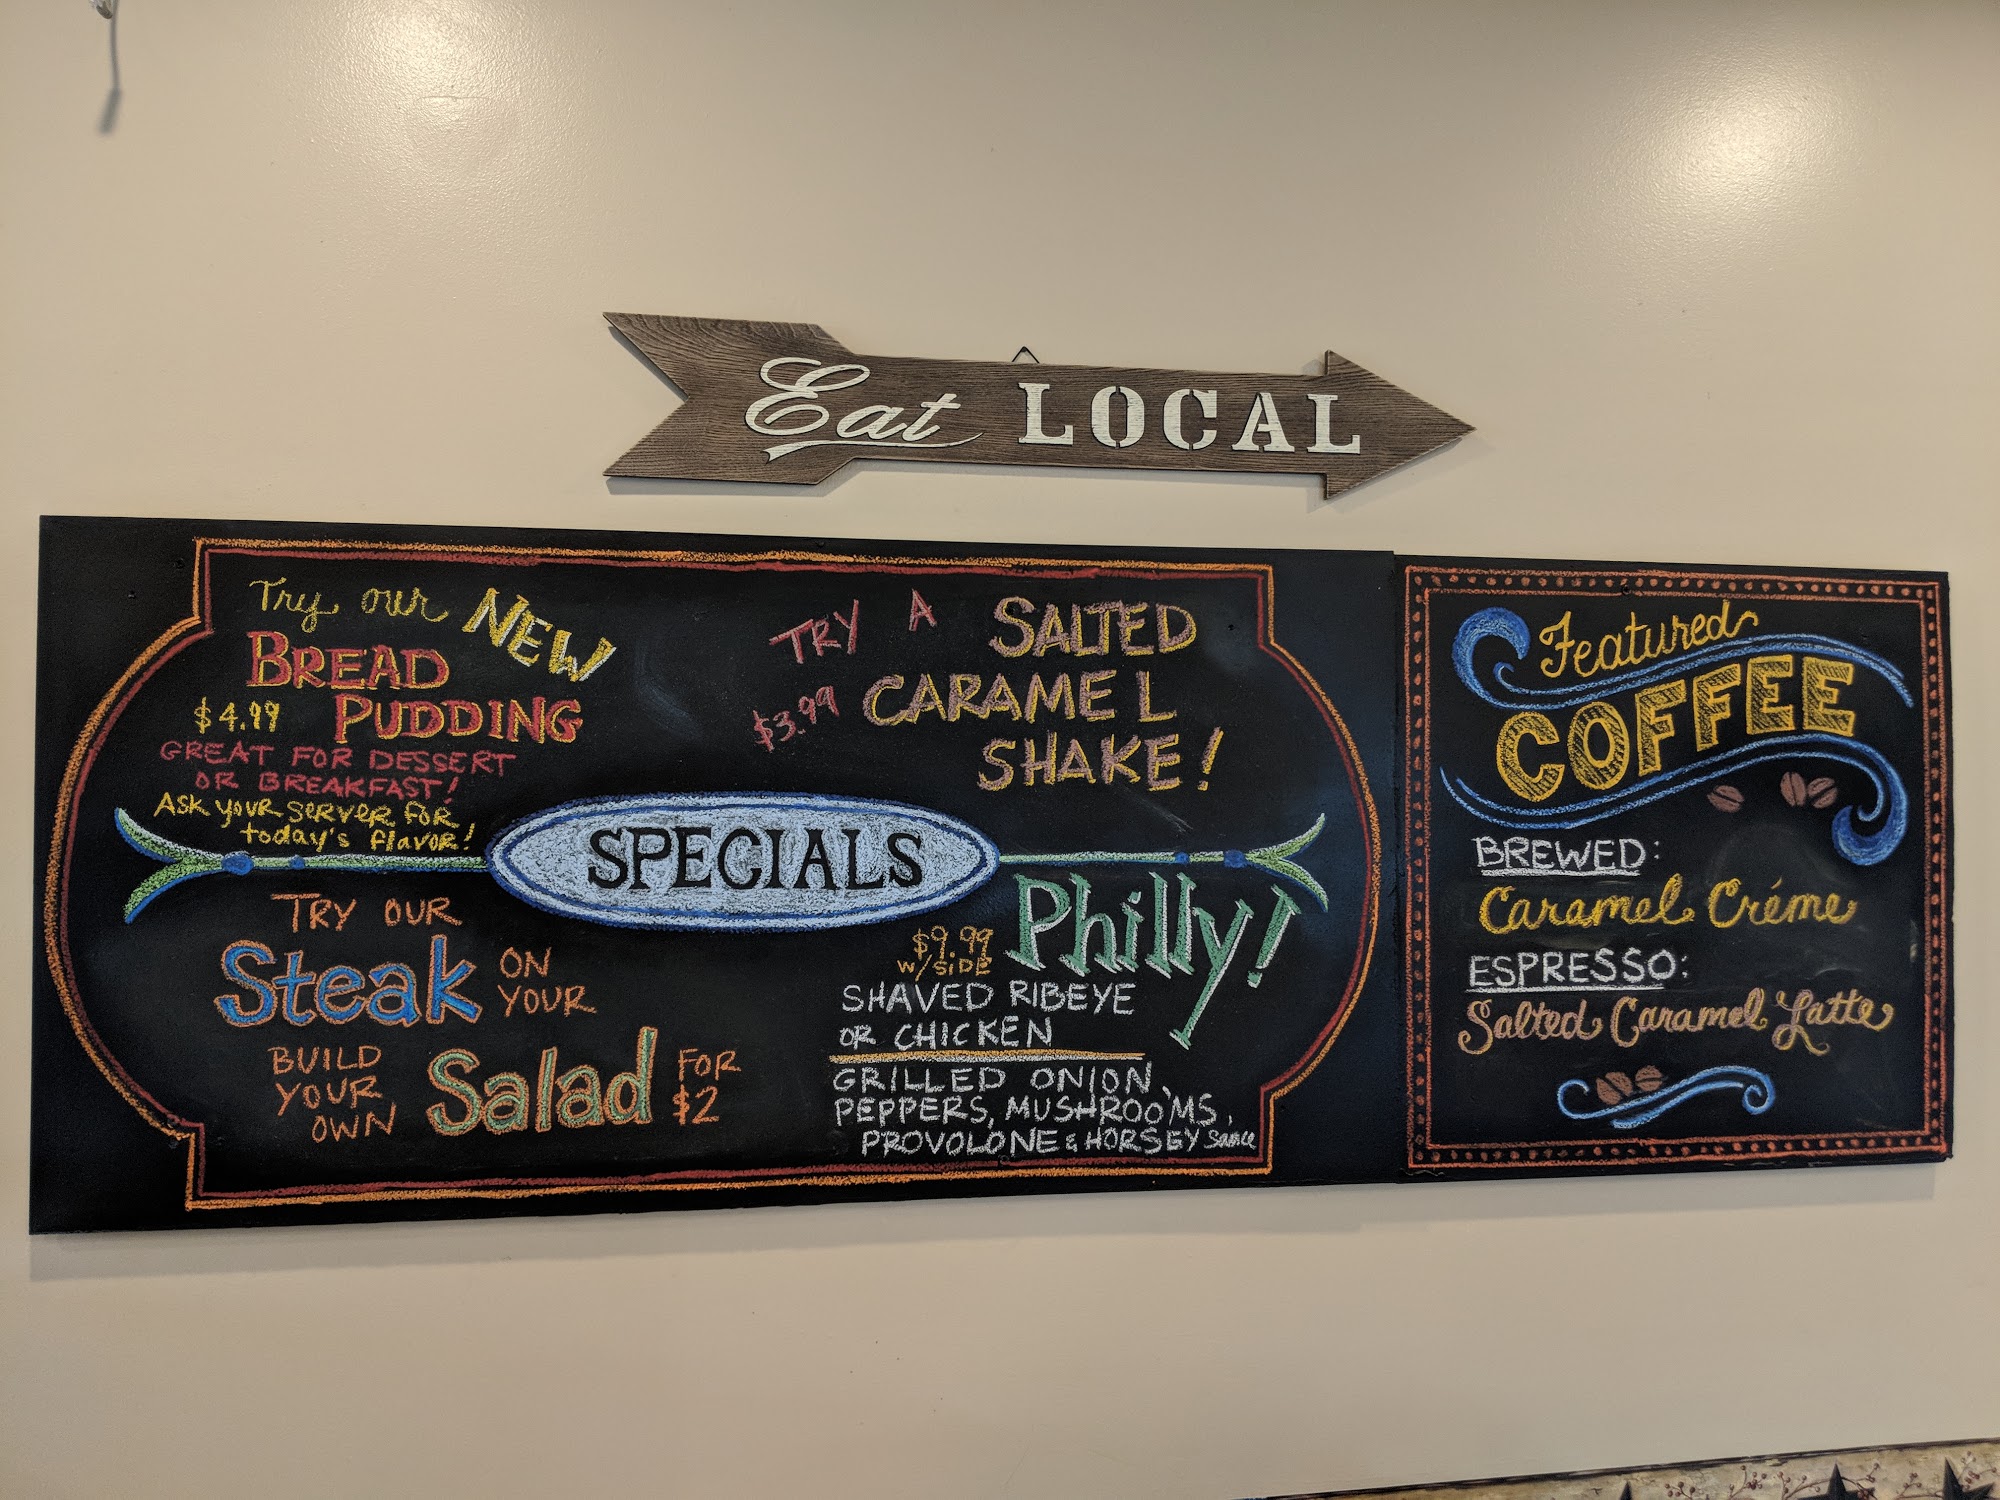 Eat LOCAL
Try our NEW
BREAD
$4.99 PUDDING
GREAT FOR DESSERT
OR BREAKFAST!
ASK YOUR SERVER FOR
today's flavor!
TRY A SALTED
$3.99 CARAMEL
SHAKE!
SPECIALS
TRY OUR
Steak ON
YOUR
BUILD
YOUR
OWN
Salad FOR
$2
Philly!
$9.99
W/SIDE
SHAVED RIBEYE
OR CHICKEN
GRILLED ONION,
PEPPERS, MUSHROOMS,
PROVOLONE & HORSEY Sauce
Featured
COFFEE
BREWED:
Caramel Créme
ESPRESSO:
Salted Caramel Latte